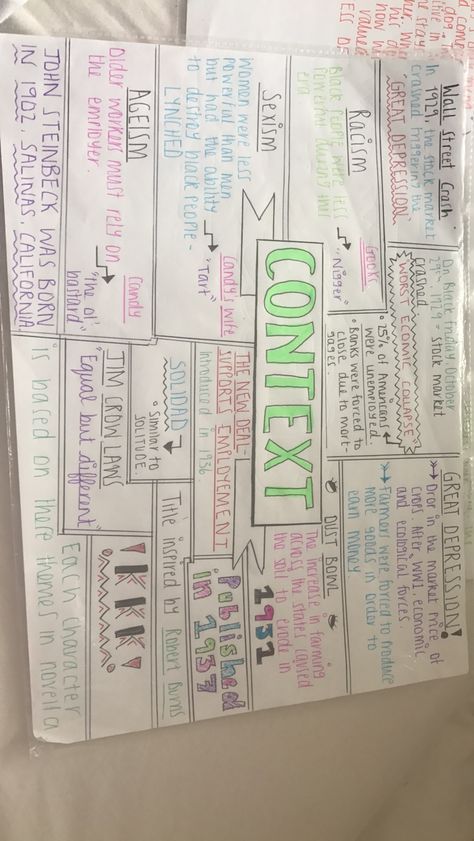 Wall Street Crash.
In 1929, the stock market
crashed triggering the
"GREAT DEPRESSION
On Black Friday, October
29th 1929 - stock market
crashed
WORST ECONMIC COLLAPSE
25% of Americans
were unemployed.
Banks were forced to
close due to mort-
gages.
GREAT DEPRESSION!
Drop in the market price of
crops After WW1, economic
and ecological forces.
Farmers were forced to produce
more goods in order to
earn money
Racism
Black people were less
powerful during this
era
Crooks
"Nigger"
Sexism
Women were less
powerful than men
but had the ability
to destroy black people -
LYNCHED
Candy's wife
"Tart"
CONTEXT
DUST BOWL
The increase in farming
across the states caused
the soil to erode in
1932
AGEISM
Older workers must rely on
the employer.
Candy
"ine ol'
bastard"
THE NEW DEAL -
SUPPORTS EMPLOYEMENT
introduced in 1936
Published
in 1937
SOLIDAD
Similar to
SOLITUDE.
Title inspired by Robert Burns
JIM CROW LAWS
"Equal but different"
KKK!
JOHN STEINBECK WAS BORN
IN 1902, SALINAS, CALIFORNIA
Each character
is based on there themes in novella